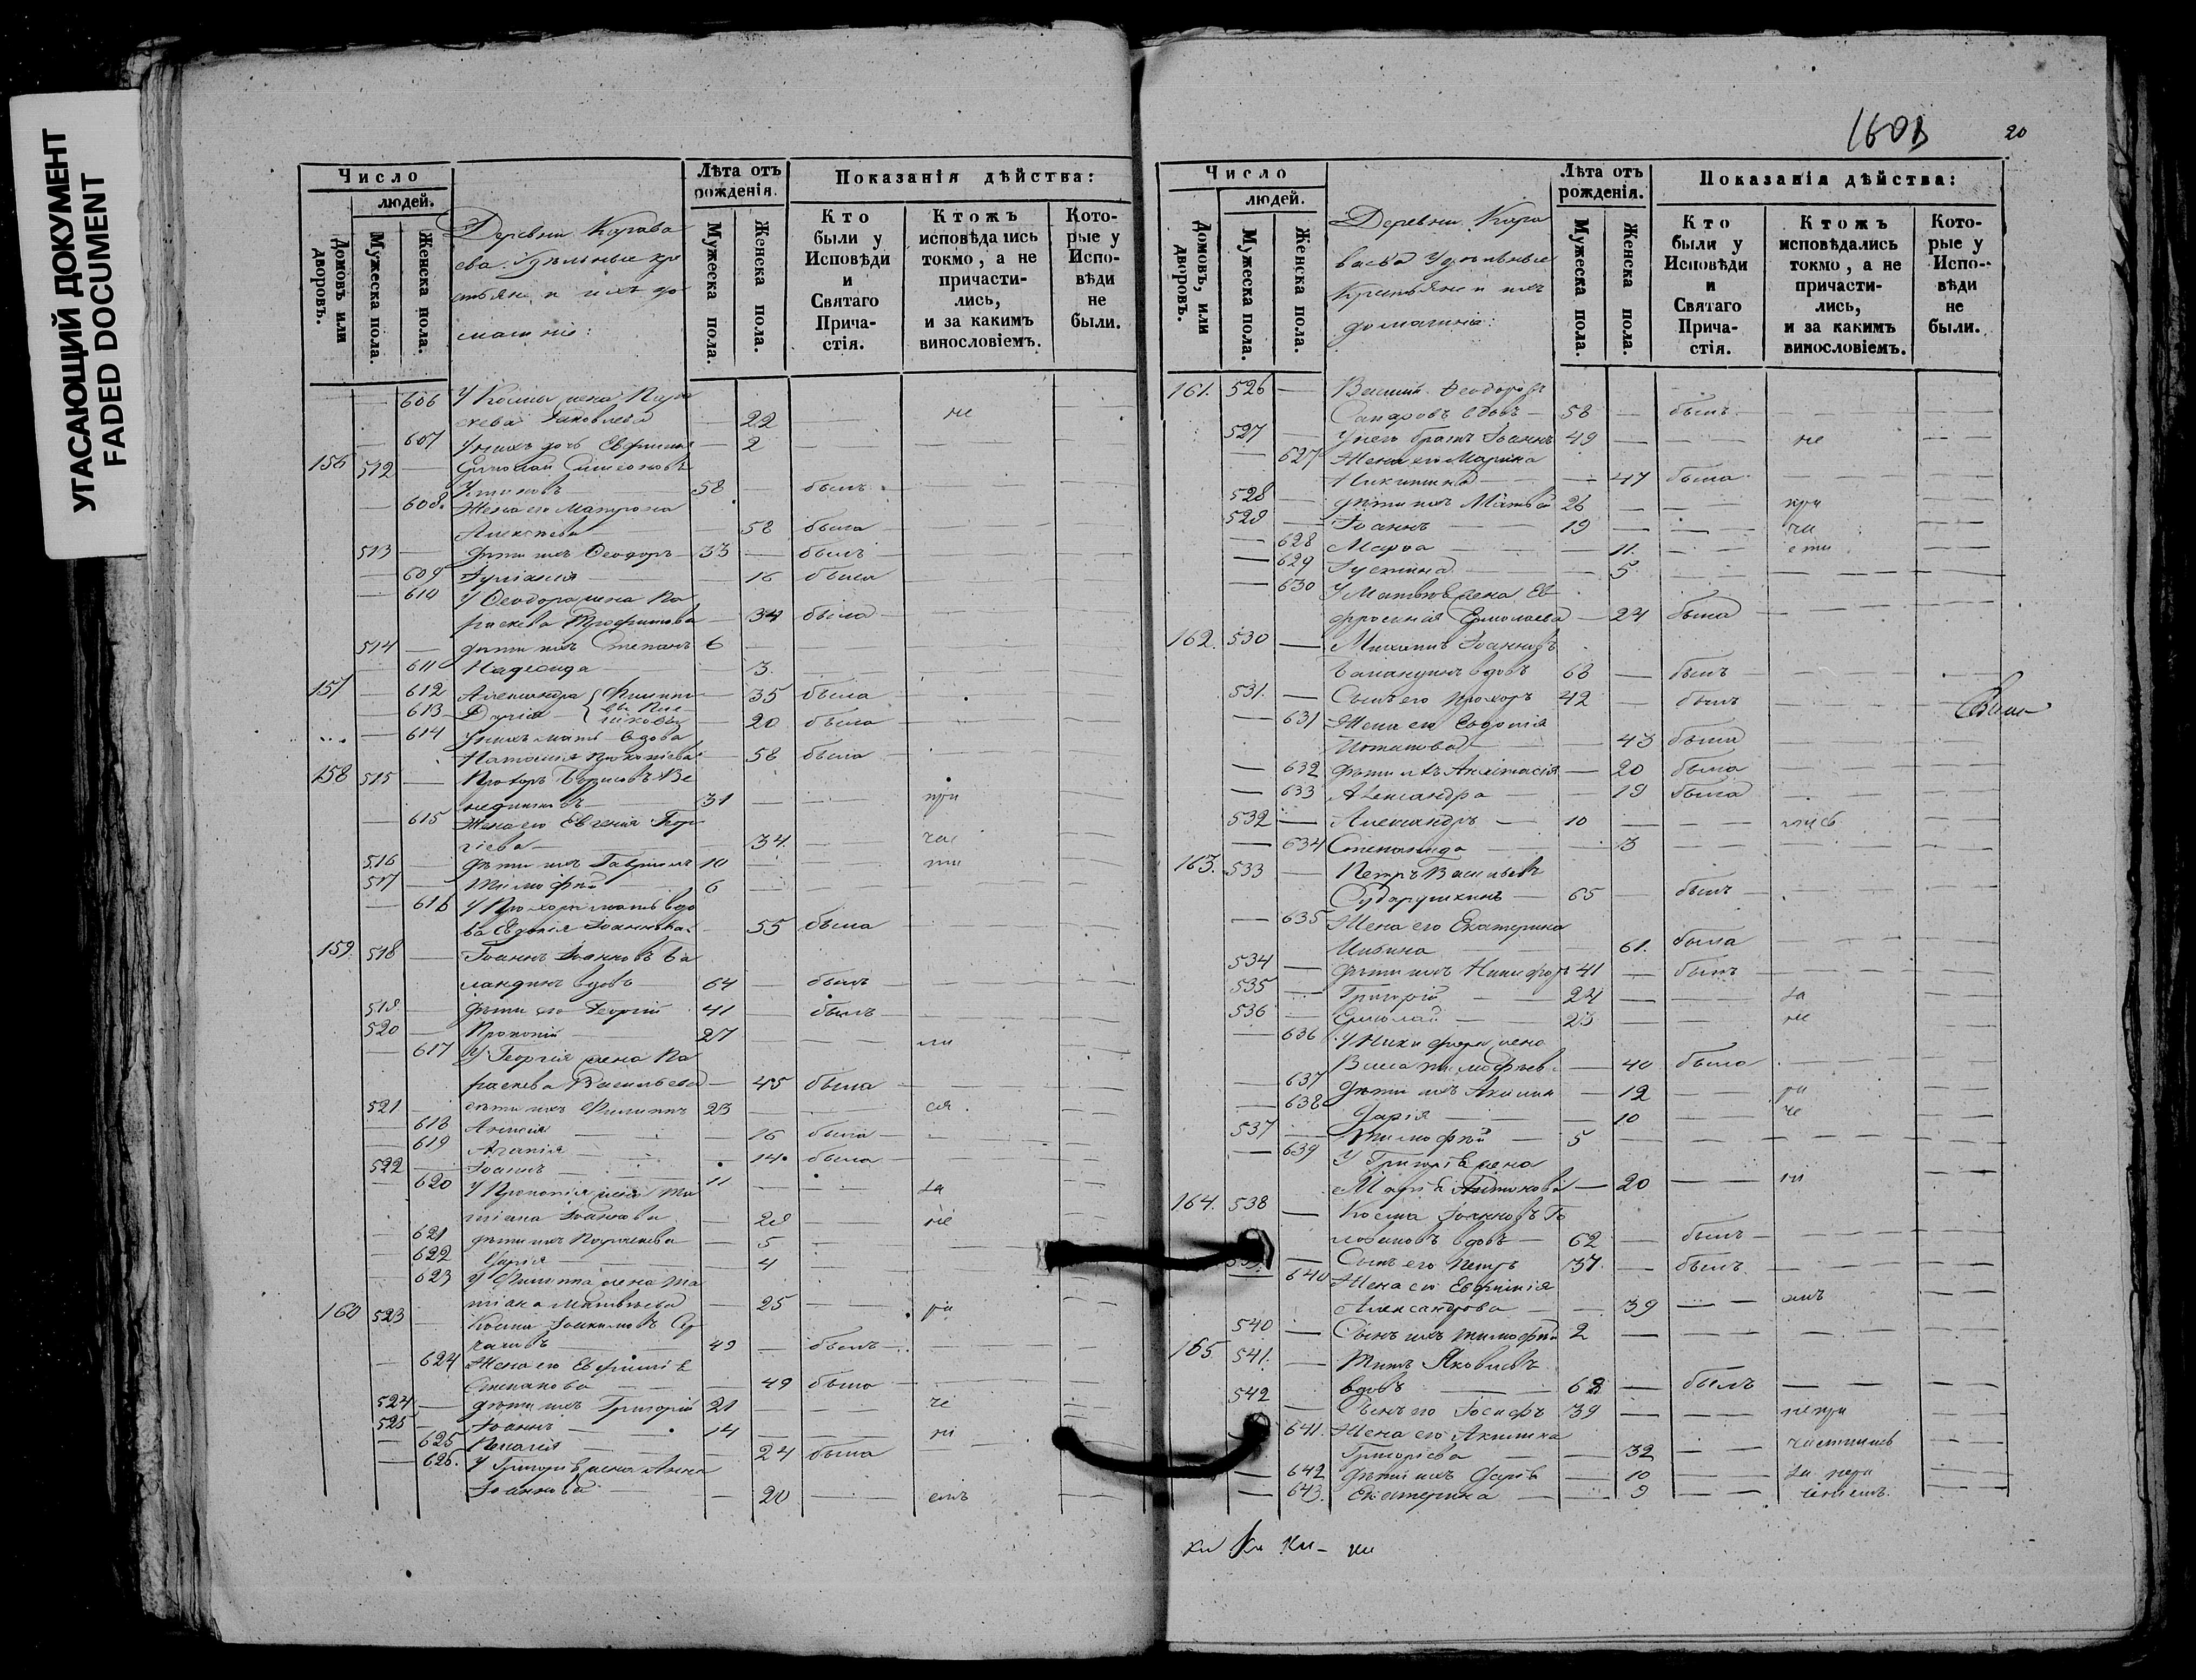 УГАСАЮЩИЙ ДОКУМЕНТ
FADED DOCUMENT
Число
людей.
Домовъ или дворовъ.
Мужеска пола.
Женска пола.
Деревни Карава
ева Удѣльные кре
стьяне и ихъ до
машнiе:
Лѣта отъ рожденiя.
Мужеска пола.
Женска пола.
Показанiя дѣйства:
Кто были у Исповѣди и Святаго Прича-стiя.
Ктожъ исповѣдались токмо, а не причасти-лись, и за какимъ винословiемъ.
Кото-рые у Испо-вѣди не были.
— 606 У Космы жена Пара
скева Iаковлева — 22 — не —
— 607 У нихъ дочь Евфимiя — 2 —
156 512 — Симеоновъ
58 — былъ —
— 608. Жена его Матрона
Алексѣева — 58 была —
513 — Дѣти ихъ Ѳеодоръ — 33 — былъ —
— 609 Iулiанiя — 16 была
— 610 У Ѳеодора жена Па
раскева Трофимова — 34 была —
514 — Дѣти ихъ Степанъ 6 —
— 611 Надежда — 3. —
157 — 612 Александра Филипп 35 была
— 613 Дарiя — 20 была
— 614 У нихъ мать вдова
Наталiя Прокопiева — 58 была
158 515 — Прохоръ Борисовъ Ве
недиктовъ — 31 — при
— 615 Жена его Евгенiя Геор
гiева — 34. — час
516 — Дѣти ихъ Гаврiилъ 10 — ти
517 — Тимофей — 6 —
— 616 У Прохора мать вдо
ва Евдокiя Iоаннова — 55 была
159. 518 — Iоаннъ Iоанновъ Ба
ландинъ вдовъ 64 — былъ —
519 — Дѣти его Георгiй 41 — былъ —
520 — Прокопiй — 27 — ли
— 617 У Георгiя жена Па
раскева Васильева — 45 была —
521 — Дѣти ихъ Филиппъ 23 — ся
618 — 16 была —
— 619 Агапiя — 14 была —
522 — Iоаннъ — 11 —
— 620 У Прокопiя жена Та
тiана Iоаннова — 28 — за
не
— 621 Дѣти ихъ Параскева — 5 —
— 622 Дарiя — 4
— 623 У Филиппа жена Та
тiана Матвѣева — 25 — ра
160 523 — Косма Iоакимовъ
49 — былъ —
— 624 Жена его Евфимiя
Степанова — 49 была —
524 — Дѣти ихъ Григорiй 21 — че
525 — Iоаннъ — 14 — нi
— 625 Пелагiя — 24 была
— 626. У Григорiя жена Анна
Iоаннова — 20 — емъ
1601
20
Число
людей.
Домовъ, или дворовъ.
Мужеска пола.
Женска пола.
Деревни Кара
ваева Удѣльные
Крестьяне и ихъ
домашнiе:
Лѣта отъ рожденiя.
Мужеска пола.
Женска пола.
Показанiя дѣйства:
Кто были у Исповѣди и Святаго Прича-стiя.
Ктожъ исповѣдались токмо, а не причасти-лись, и за какимъ винословiемъ.
Кото-рые у Испо-вѣди не были.
161. 526 — Василiй Ѳеодоровъ
вдовъ — 58 — былъ —
527 — У него братъ Iоаннъ 49 — не —
— 627 Жена его Марина
Никитина — 47 была
528 — Дѣти ихъ Матвей 26 — при
529 — Iоаннъ — 19 — ча
— 628 Марѳа — 11. — сти
— 629 Iустина — 5 —
— 630 У Матвея жена Ев
фросинiя Ермолаева — 24 была
162. 530 — Михаилъ Iоанновъ
Баландинъ вдовъ 68 — былъ
531. — Сынъ его Прохоръ 42 — былъ
— 631 Жена его Евдокiя
Потапова — 43 была
— 632 Дѣти ихъ Анастасiя — 20 была
— 633 Александра — 19 была
532 — Александръ — 10 — лись
— 634 Степанида — 3 —
163. 533 — Петръ Васильевъ
Сударушкинъ — 65 — былъ —
— 635 Жена его Екатерина
61. была
534 — Дѣти ихъ Никифоръ 41 — былъ
535 — Григорiй — 24 — за
536 — Ермолай — 23 — не
— 636 У Никифора жена
Тимофеев. — 40 была
— 637 Дѣти ихъ Акилин — 12 — ра
— 638 Дарiя — 10 — че
537 — Тимофей — 5 —
— 639 У Григорiя жена
Марiя — 20 — нi
164. 538 — Косма Iоанновъ Го
ловановъ вдовъ — 62 — былъ —
Сынъ его Петръ 37. — былъ
— 640 Жена его Евфимiя
Александрова — 39 — емъ
540 — Сынъ ихъ Тимофей 2 —
165. 541. — Титъ Яковлевъ
вдовъ — 68 — былъ —
542 — Сынъ его Iосифъ 39 — непри
— 641. Жена его Акилина
Григорiева — 32 — частились
— 642 Дѣти ихъ Дарiя — 10 — за нера
— 643. Екатерина — 9 — ченiемъ.